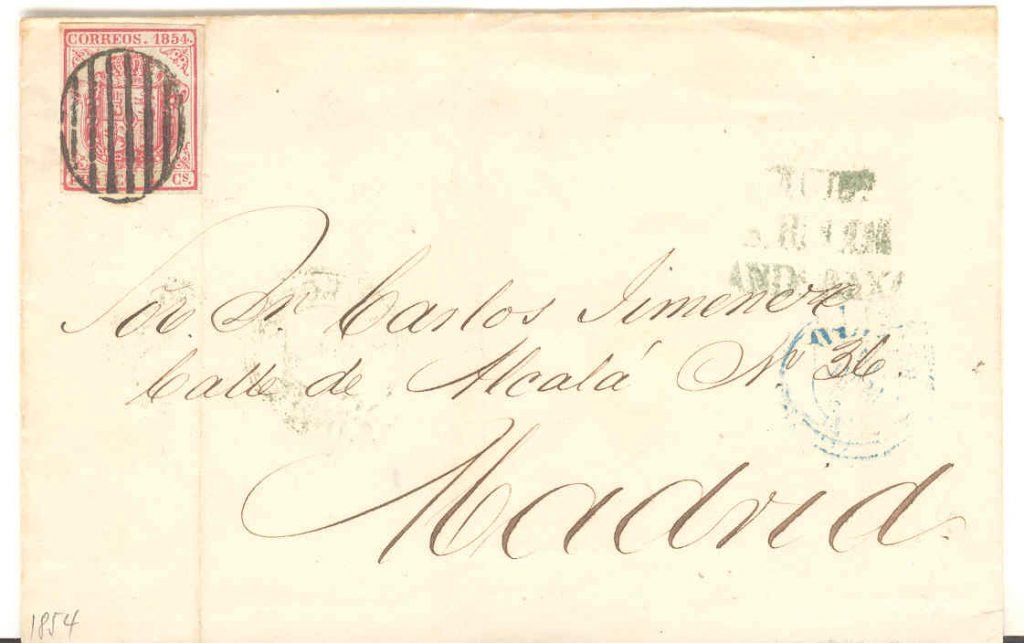 CORREOS. 1854.
Cs.
Sor. Dn. Carlos Jimenez
Calle de Alcalá No 36
Madrid.
1854